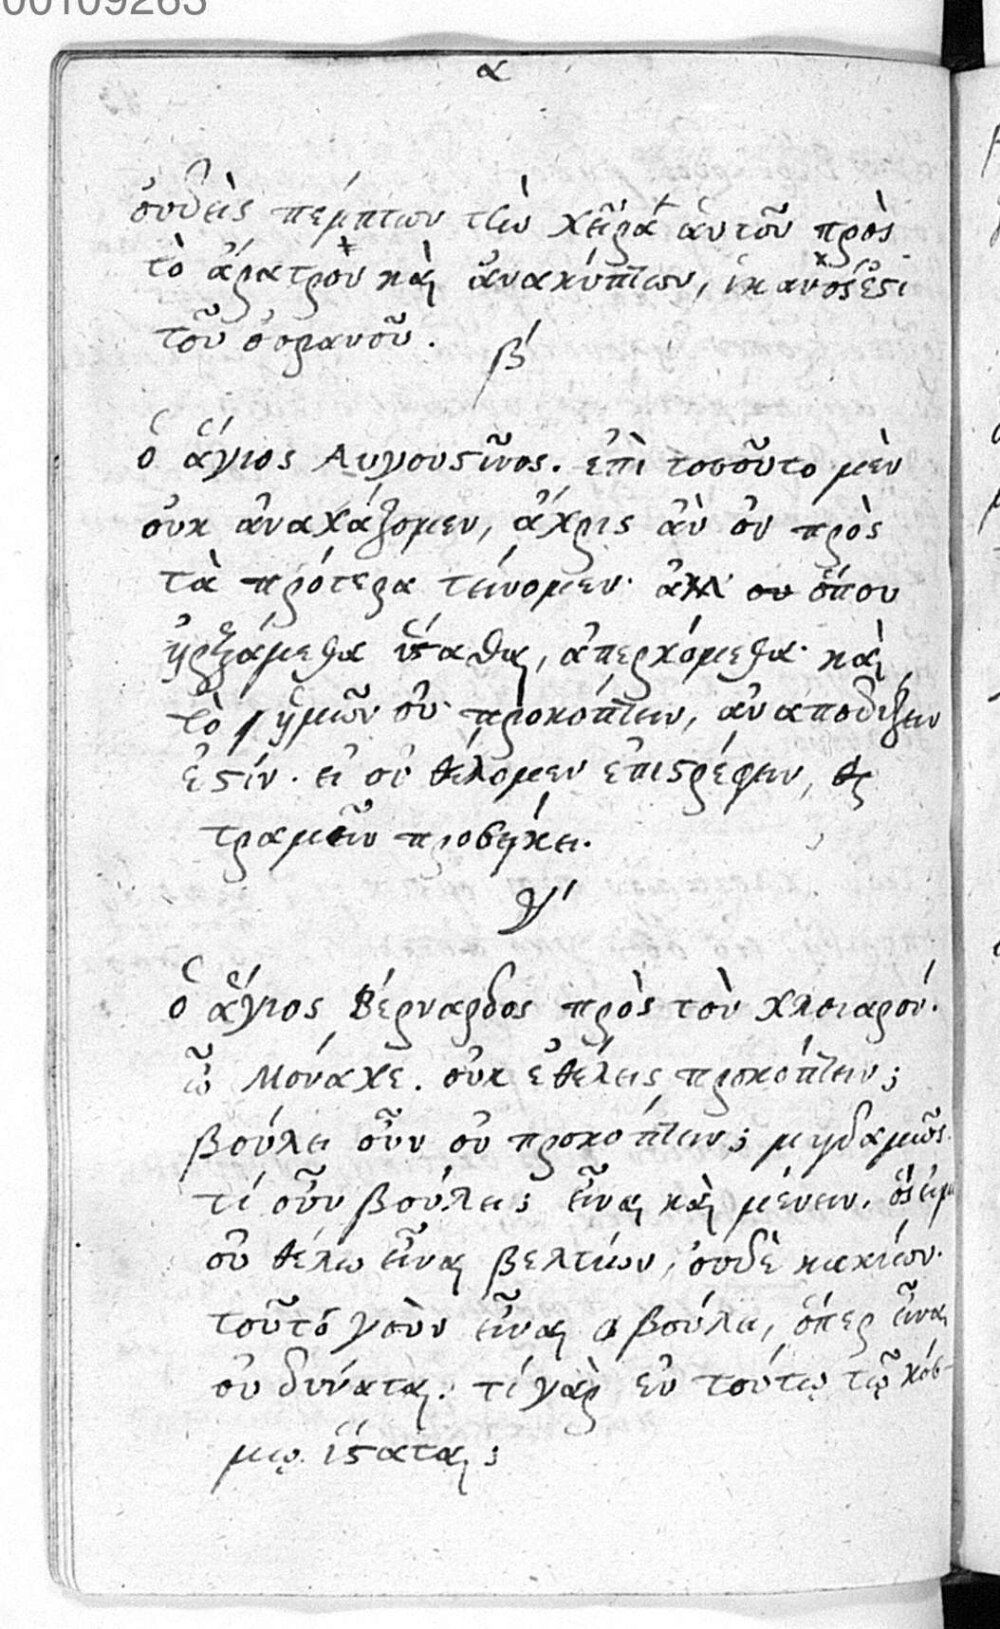 00109263
α
ὀυδεὶς πέμπτων τὴν χεῖρα ἁυτοῦ πρὸς
τὸ ἄρατρον καὶ ἀνακύπτων, ἱκανὸς ἐστι
τοῦ ὀυρανοῦ.
β΄
ὁ ἅγιος Αυγουστῖνος. ἐπὶ τοσοῦτο μὲν
οὐκ ἀναχάζομεν, ἄχρις ἂν ὀυ πρὸς
τὰ πρότερα τείνομεν· ὅπου
ἠρξάμεθα ἵσταθαι, ἀπερχόμεθα· καὶ
τὸ ἡμῶν οὐ προκόπτειν, ἀναποδίζειν
ἐστίν. εἰ οὐ θέλομεν ἐπιστρέφειν,
τραμεῖν προσήκει.
γ΄
ὁ ἅγιος Βέρναρδος πρὸς τὸν χλοιαρόν.
ὦ Μόναχε. οὐκ ἐθέλεις προκόπτειν;
βούλει οὖν οὐ προκόπτειν; μηδαμῶς.
τί οὖν βούλει; εἶναι καὶ μένειν,
οὐ θέλω εἶναι βελτίων, ὀυδὲ κακίων.
τοῦτό γοὺν εἶναι βούλει, ὅπερ εἶναι
οὐ δύναται. τί γὰρ ἐν τούτῳ τῷ κόσ-
μῳ ἵσταται;